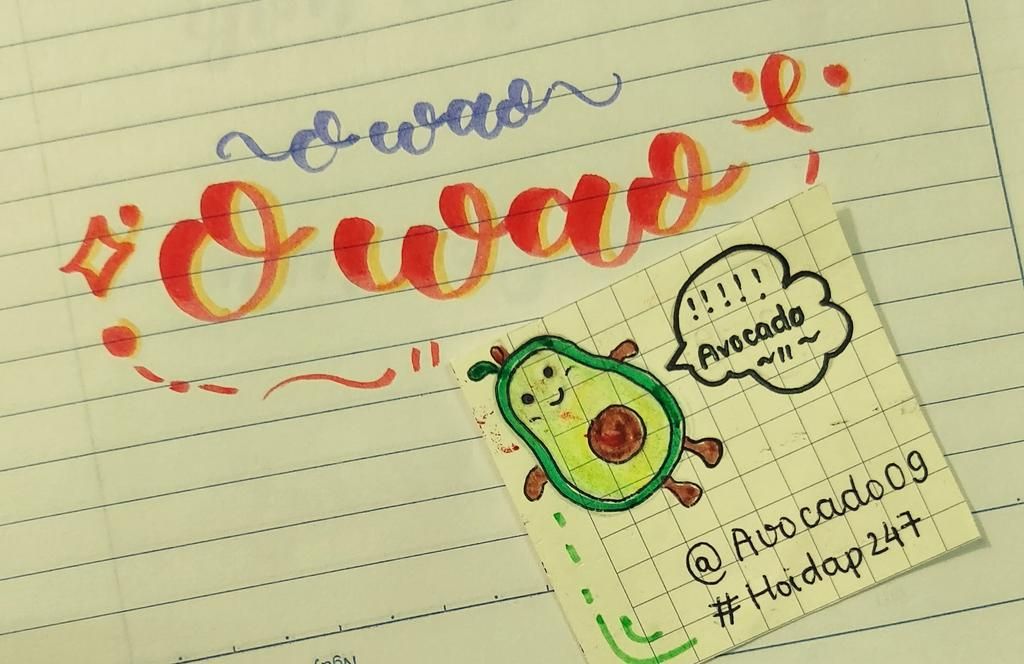 O wao
O wao
!!!!!
Avocado
~"~
@Avocado09
#Hoidap247